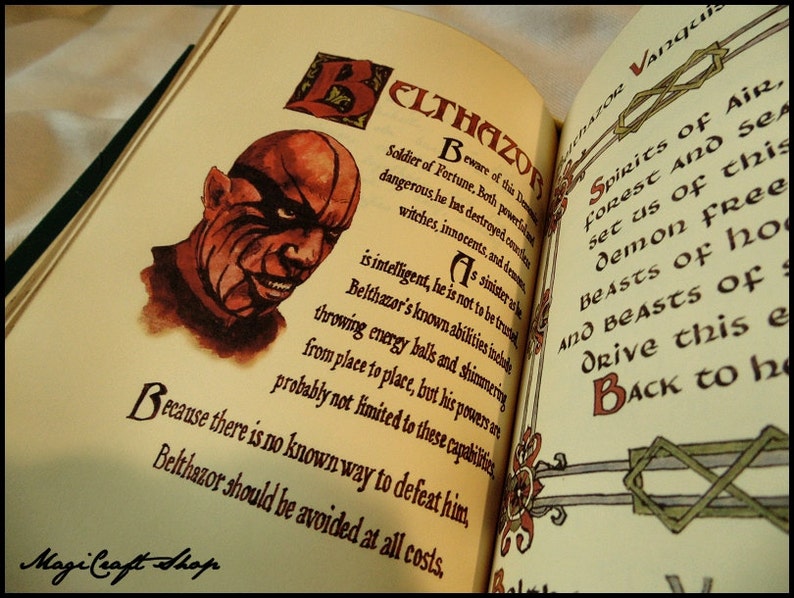 BELTHAZOR
Beware of this Demonic
Soldier of Fortune. Both powerful and
dangerous, he has destroyed countless
witches, innocents, and demons.
As sinister as he
is intelligent, he is not to be trusted.
Belthazor's known abilities include
throwing energy balls and shimmering
from place to place, but his powers are
probably not limited to these capabilities.
Because there is no known way to defeat him,
Belthazor should be avoided at all costs.
Belthazor Vanquis
Spirits of air,
forest and sea
set us of this
demon free
Beasts of hoo
and beasts of s
drive this e
Back to he
Belth
Va
MagiCraft Shop